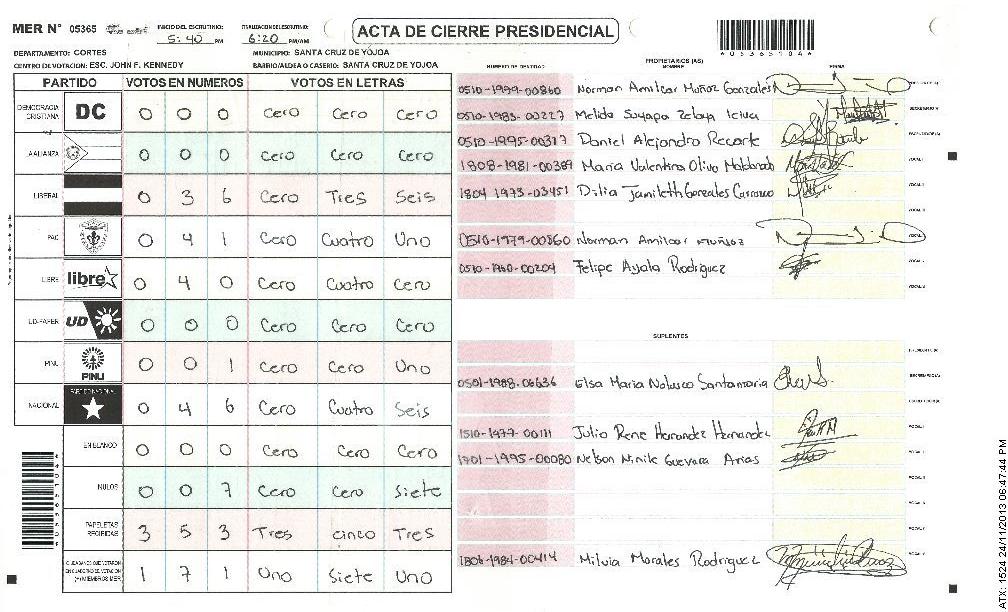 MER N° 05365 INICIO DEL ESCRUTINIO: 5:40 PM FINALIZACION DEL ESCRUTINIO: 6:20 PM/AM ACTA DE CIERRE PRESIDENCIAL
DEPARTAMENTO: CORTES MUNICIPIO: SANTA CRUZ DE YOJOA
CENTRO DE VOTACION: ESC. JOHN F. KENNEDY BARRIO/ALDEA O CASERIO: SANTA CRUZ DE YOJOA
PARTIDO VOTOS EN NUMEROS VOTOS EN LETRAS
DEMOCRACIA CRISTIANA DC 0 0 0 Cero Cero Cero
ALIANZA 0 0 0 Cero Cero Cero
LIBERAL 0 3 6 Cero Tres Seis
PAC 0 4 1 Cero Cuatro Uno
LIBRE libre 0 4 0 Cero Cuatro Cero
UD-FAPER UD 0 0 0 Cero Cero Cero
PINU PINU 0 0 1 Cero Cero Uno
NACIONAL PARTIDO NACIONAL 0 4 6 Cero Cuatro Seis
EN BLANCO 0 0 0 Cero Cero Cero
NULOS 0 0 7 Cero Cero Siete
PAPELETAS RECIBIDAS 3 5 3 Tres cinco Tres
CIUDADANOS QUE VOTARON EN CUADERNO DE VOTACION (+) MIEMBROS MER 1 7 1 Uno Siete Uno
NUMERO DE IDENTIDAD PROPIETARIOS (AS) NOMBRE FIRMA
0510-1999-00860 Norman Amilcar Muñoz Gonzales
0510-1983-00227 Melida Suyapa Zelaya
0510-1995-00317 Daniel Alejandro Recarte
1808-1981-00389 Maria Valentina Olivo Maldonado
1804 1973-03451 Dilia Jamileth Gonzales Carrasco
0510-1979-00860 Norman Amilcar Muñoz
0510-1960-00204 Felipe Ayala Rodriguez
SUPLENTES
0501-1988-06636 Elsa Maria Nolasco Santamaria
1510-1977-00111 Julio Rene Hernandez Hernandez
1701-1995-00080 Nelson Ninile Guevara Arias
1806-1984-00414 Milvia Morales Rodriguez
ATX: 1524 24/11/2013 06:47:44 PM